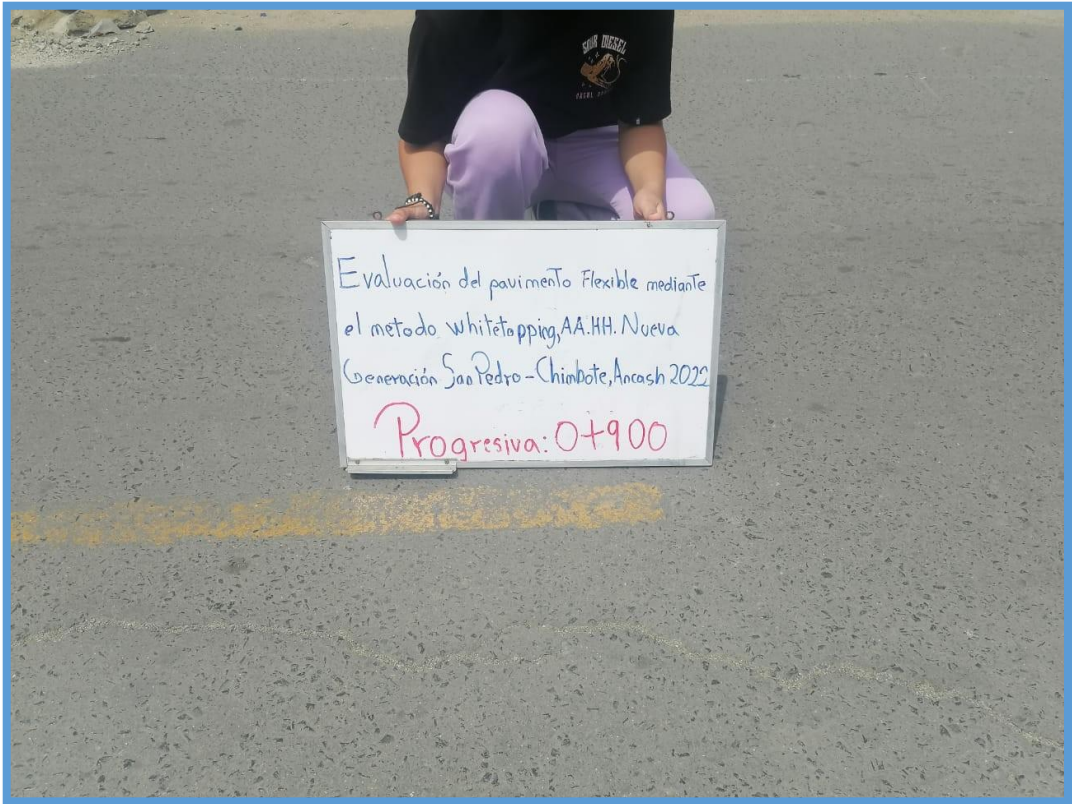 SOUR DIESEL
Evaluación del pavimento Flexible mediante
el metodo whitetopping, AA.HH. Nueva
Generación San Pedro - Chimbote, Ancash 2022
Progresiva: 0+900